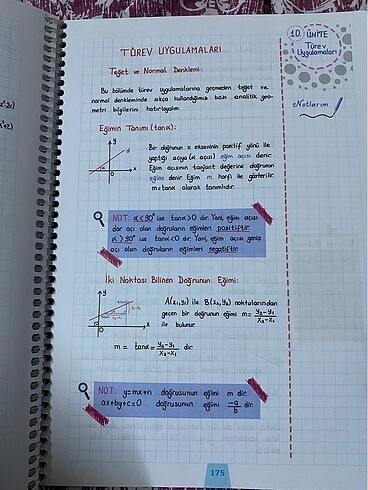 TÜREV UYGULAMALARI
Teğet ve Normal Denklemi:
Bu bölümde türev uygulamalarına geçmeden teğet ve
normal denkleminde sıkça kullandığımız bazı analitik geo-
metri bilgilerini hatırlayalım.
Eğimin Tanımı (tanα):
Bir doğrunun x ekseninin pozitif yönü ile
yaptığı açıya (α açısı) eğim açısı denir.
Eğim açısının tanjant değerine doğrunun
eğimi denir. Eğim m harfi ile gösterilir.
m=tanα olarak tanımlıdır.
y
d
α
x
NOT: α<90° ise tanα>0 dır. Yani, eğim açısı
dar açı olan doğruların eğimleri pozitiftir.
α>90° ise tanα<0 dır. Yani, eğim açısı geniş
açı olan doğruların eğimleri negatiftir.
İki Noktası Bilinen Doğrunun Eğimi:
A(x₁,y₁) ile B(x₂,y₂) noktalarından
geçen bir doğrunun eğimi m= y₂-y₁/x₂-x₁
ile bulunur.
y
x
m = tanα= y₂-y₁/x₂-x₁ dir.
NOT: y=mx+n doğrusunun eğimi m dir.
ax+by+c=0 doğrusunun eğimi -a/b dir.
175
10. ÜNİTE
Türev
Uygulamaları
Notlarım